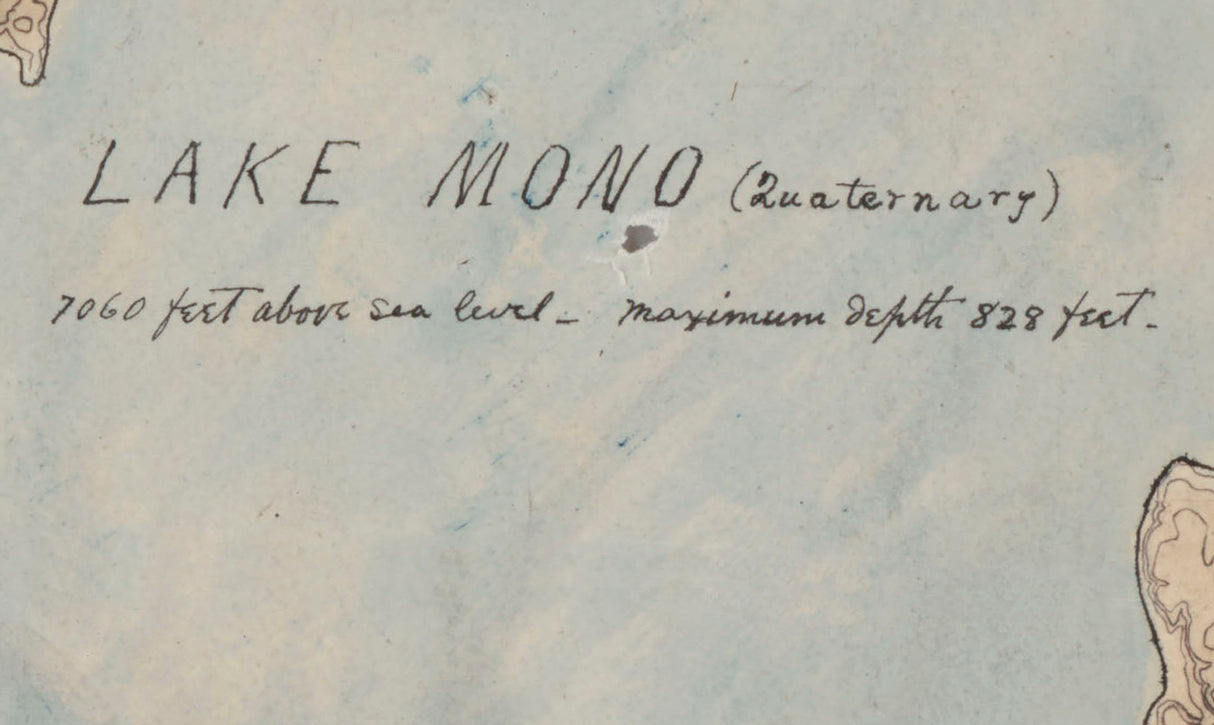 LAKE MONO (Quaternary)
7060 feet above sea level - maximum depth 828 feet -